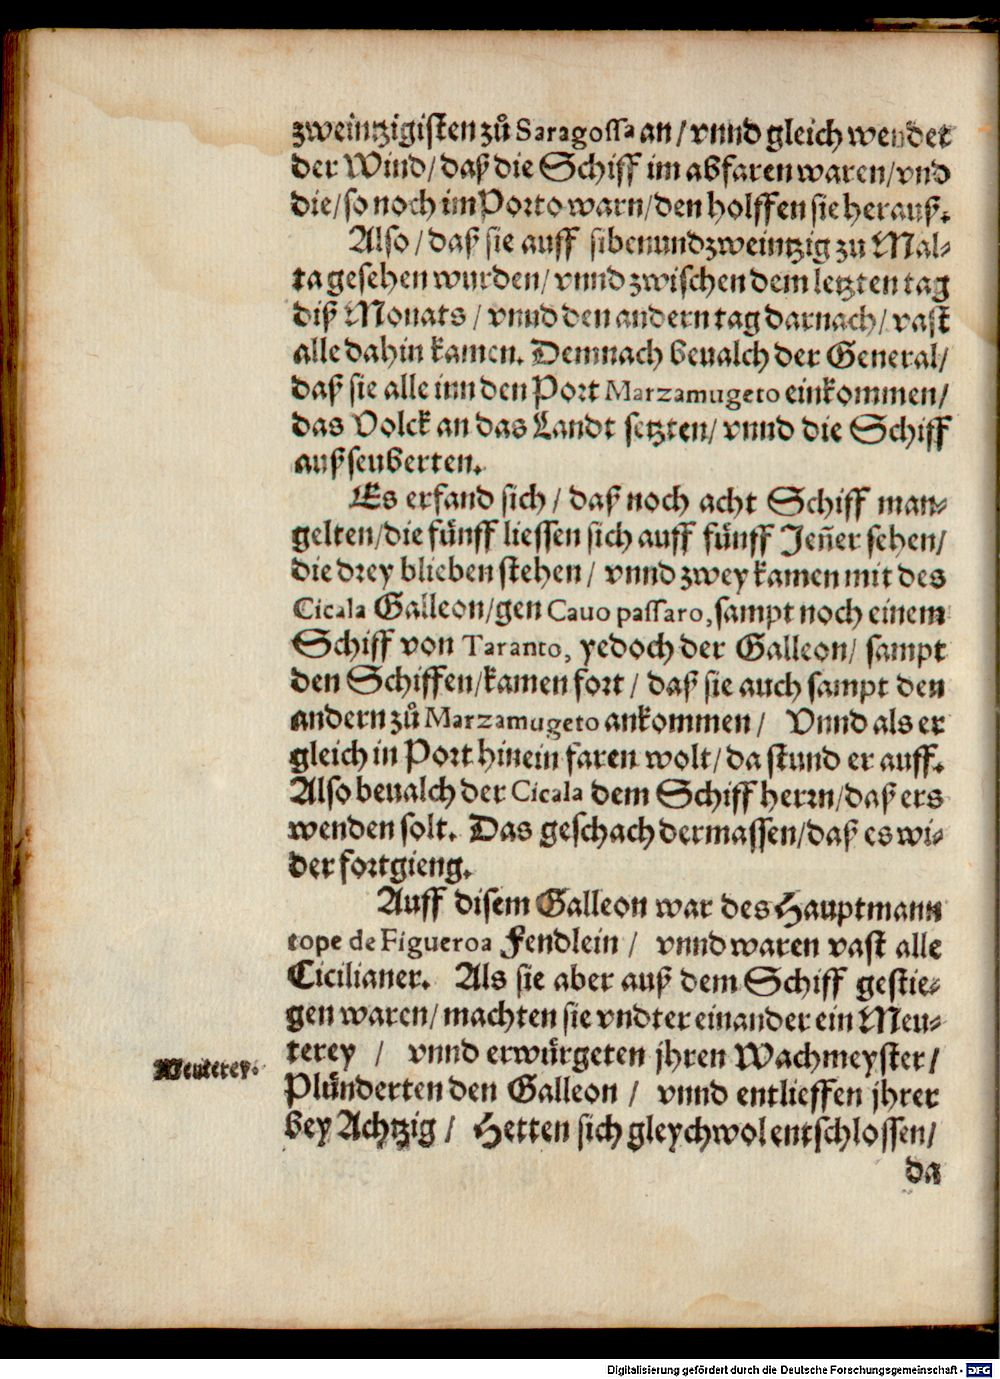 zweintzigisten zů Saragossa an / vnnd gleich wendet
der Wind / daß die Schiff im abfaren waren / vnd
die / so noch im Porto warn / den holffen sie herauß.
Also / daß sie auff sibenundzweintzig zu Mal-
ta gesehen wurden / vnnd zwischen dem letzten tag
diß Monats / vnnd den andern tag darnach / vast
alle dahin kamen. Demnach beualch der General /
daß sie alle inn den Port Marzamugeto einkommen /
das Volck an das Landt setzten / vnnd die Schiff
außseuberten.
Es erfand sich / daß noch acht Schiff man-
gelten / die fünff liessen sich auff fünff Jeñer sehen /
die drey blieben stehen / vnnd zwey kamen mit des
Cicala Galleon / gen Cauo passaro, sampt noch einem
Schiff von Taranto, yedoch der Galleon / sampt
den Schiffen / kamen fort / daß sie auch sampt den
andern zů Marzamugeto ankommen / Vnnd als er
gleich in Port hinein faren wolt / da stund er auff.
Also beualch der Cicala dem Schiffherrn / daß ers
wenden solt. Das geschach dermassen / daß es wi-
der fortgieng.
Auff disem Galleon war des Hauptmann
tope de Figueroa Fendlein / vnnd waren vast alle
Cicilianer. Als sie aber auß dem Schiff gestie-
gen waren / machten sie vndter einander ein Meu-
terey / vnnd erwürgeten jhren Wachmeyster /
Meuterey.
Plünderten den Galleon / vnnd entlieffen jhrer
bey Achtzig / Hetten sich gleychwol entschlossen /
da
Digitalisierung gefördert durch die Deutsche Forschungsgemeinschaft - DFG